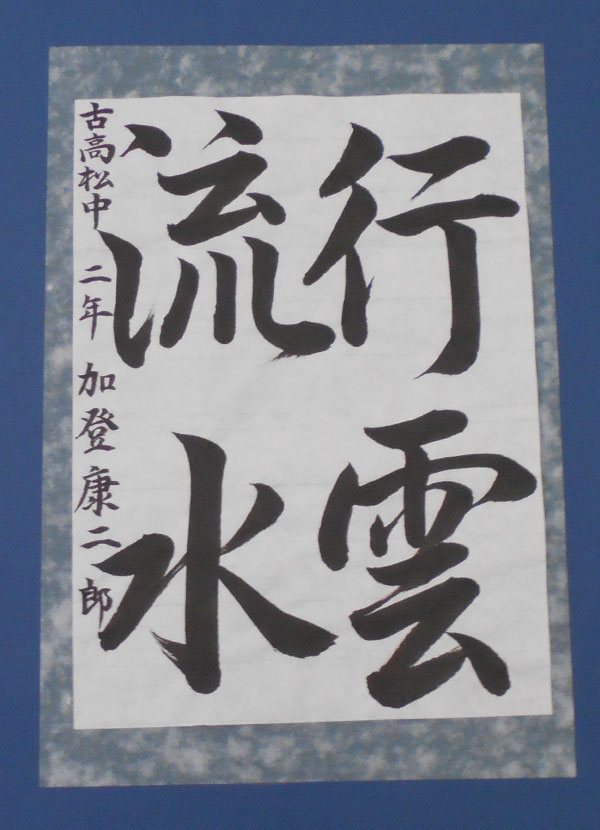 行雲
流水
古高松中 二年 加登康二郎